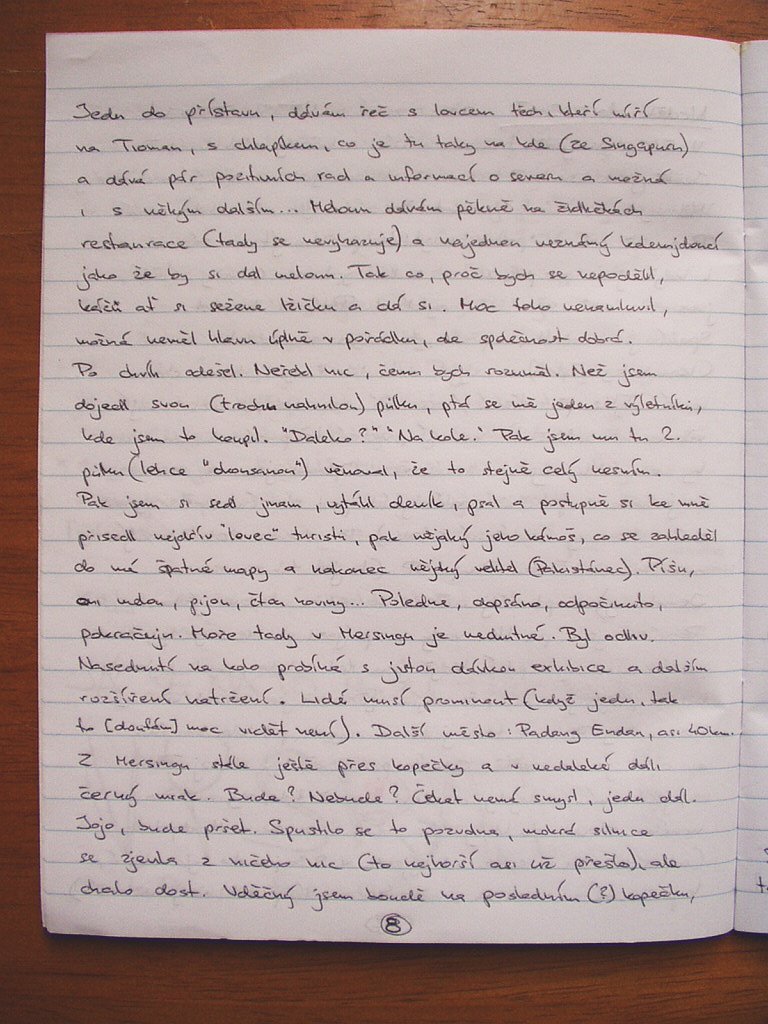 Jedu do přístavu, dávám řeč s lovcem těch, kteří míří
na Tioman, s chlapíkem, co je tu taky na kole (ze Singapuru)
a dává pár pozitivních rad a informací o severu a možná
i s někým dalším... Meloun dávám pěkně na židličkách
restaurace (tady se nevyhazuje) a najednou neznámý kdemjdoucí
jako že by si dal meloun. Tak co, proč bych se nepodělil,
káču ať si sežene lžičku a dá si. Moc toho nenamluvil,
možná neměl hlavu úplně v pořádku, ale společnost dobrá.
Po chvíli odešel. Neřekl nic, čemu bych rozuměl. Než jsem
dojedl svou (trochu nahnilou) půlku, ptá se mě jeden z výletníků,
kde jsem to koupil. "Daleko?" "Na kole." Pak jsem mu tu 2.
půlku (lehce "okousanou") věnoval, že to stejně celý nesním.
Pak jsem si sedl jinam, vytáhl deník, psal a postupně si ke mně
přisedl nejdřív "lovec" turistů, pak nějaký jeho kámoš, co se zahleděl
do mé špatné mapy a nakonec nějaký velitel (Pakistánec). Píšu,
oni mdou, pijou, čtou noviny... Poledne, dopsáno, odpočinuto,
pokračuju. Moře tady v Mersingu je nedutné. Byl odliv.
Nasednutí na kolo probíhá s jistou dávkou exhibice a dalším
rozšíření natržení. Lidé musí prominout (když jedu, tak
to [doufám] moc vidět není). Další město: Padang Endau, asi 40 km.
Z Mersingu stále ještě přes kopečky a v nedaleké dáli
černý mrak. Bude? Nebude? Čekat nemá smysl, jedu dál.
Jojo, bude pršet. Spustilo se to pozvolna, mokrá silnice
se zjevila z ničeho nic (to nejhorší asi už přešlo), ale
chcalo dost. Vděčný jsem boudě na posledním (?) kopečku,
8